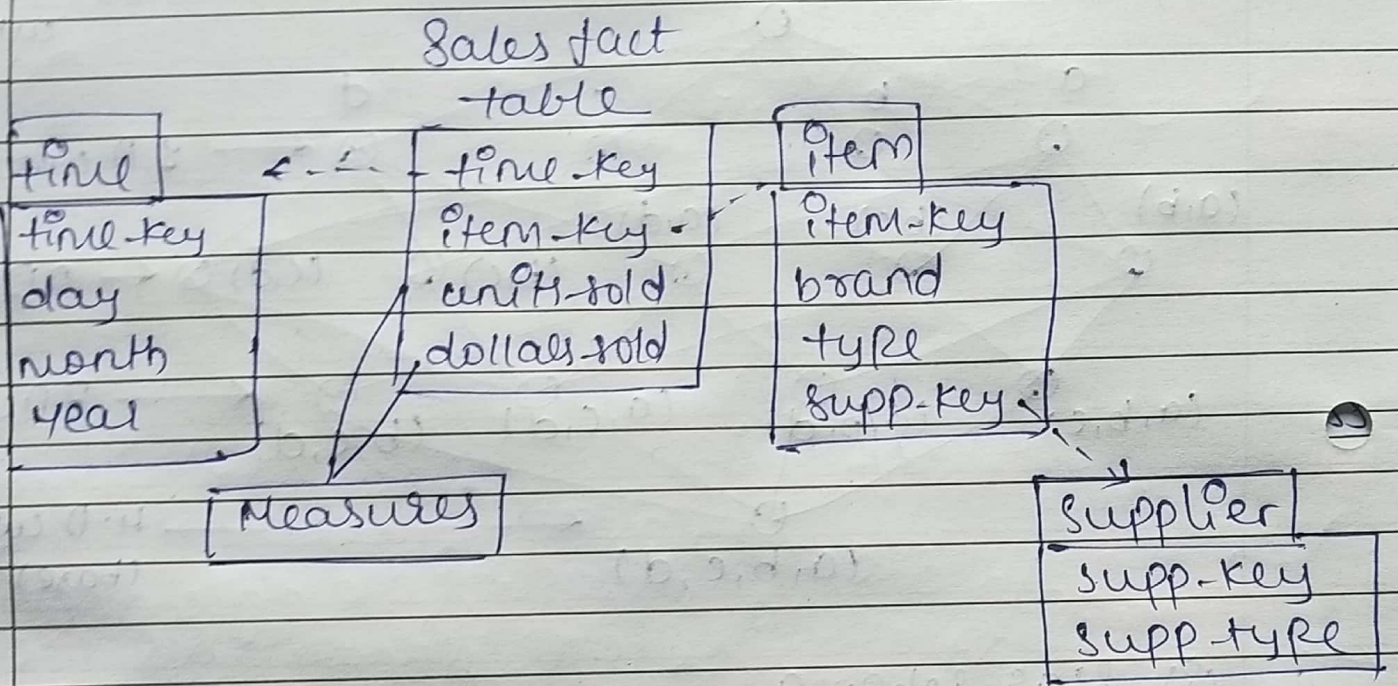 Sales fact
table
time
time-key
day
month
year
time-key
item-key
units-sold
dollars-sold
Measures
item
item-key
brand
type
supp-key
supplier
supp-key
supp-type